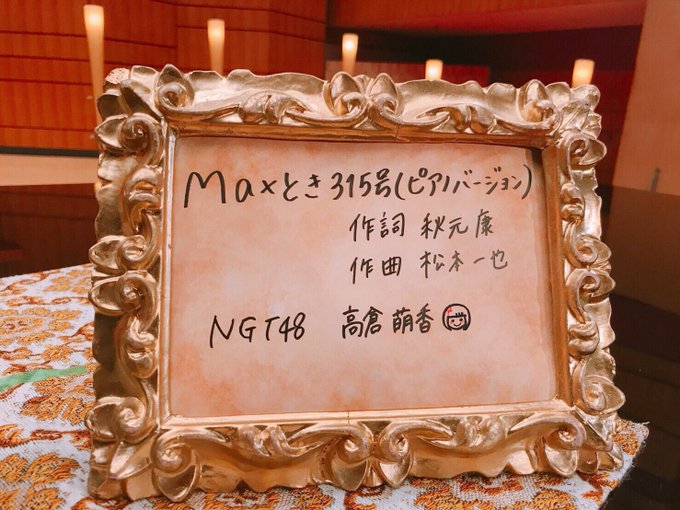 Maxとき315号(ピアノバージョン)
作詞 秋元康
作曲 松本一也
NGT48 高倉萌香